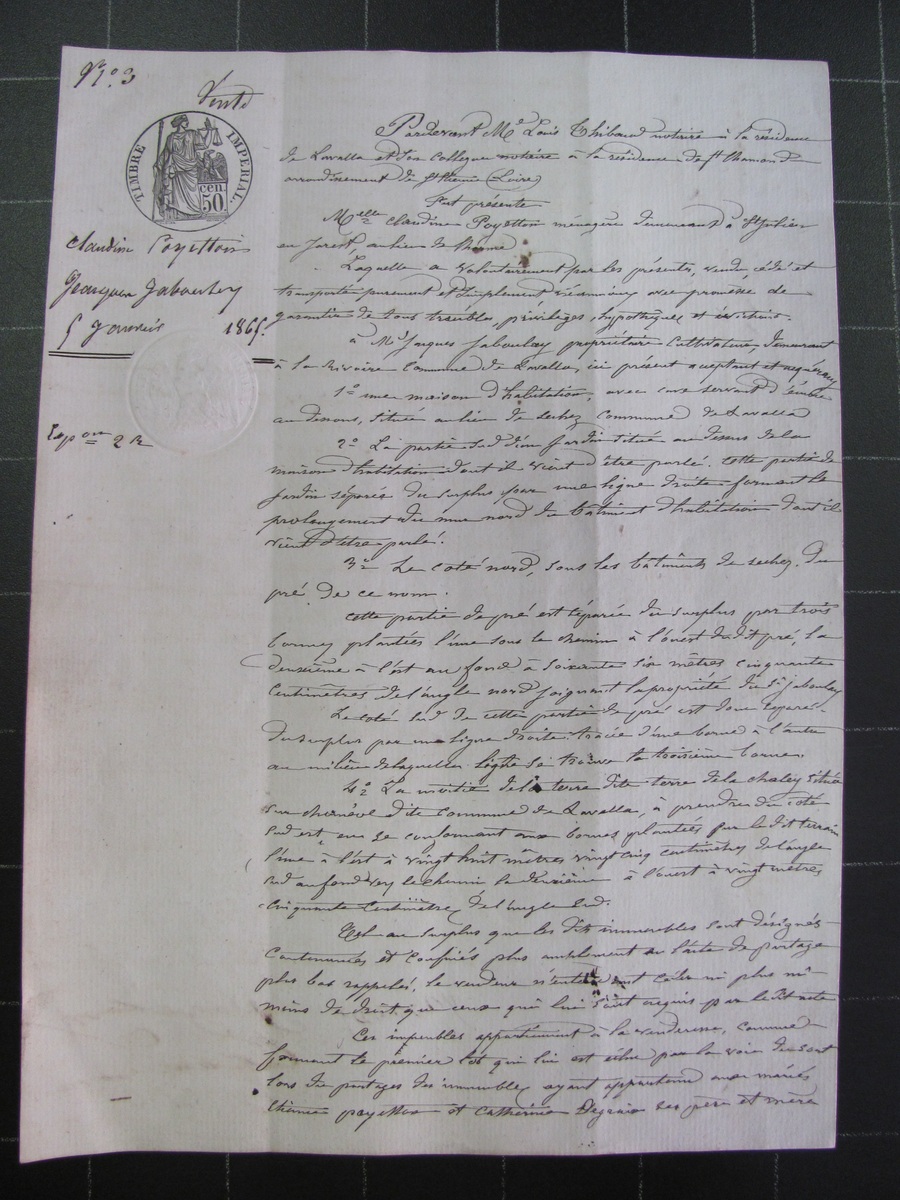 N.º 3
Vente
TIMBRE IMPERIAL.
cen.
50.
Claudine Poyetton
Jacques Jaboulay
5 Janvier 1865.
Expon 2 R
Pardevant Me Louis Thibaud notaire à la résidence
de Lavalla et son collègue notaire à la résidence de St Chamond
arrondissement de St Etienne (Loire)
Fut présente
Melle Claudine Poyetton ménagère demeurant à St Julien
en Jarest, au lieu de
Laquelle a volontairement par les présentes, vendu, cédé et
transporté purement et simplement néanmoins avec promesse de
garantie de tous troubles, privilèges, hypothèques et évictions.
à Mr Jacques Jaboulay propriétaire cultivateur, demeurant
à la Rivoire commune de Lavalla, ici présent acceptant et acquéreur
1º une maison d'habitation, avec une servant d'écurie
au dessous, située au lieu de sechez commune de Lavalla
2º La partie sud d'un Jardin situé au dessus de la
maison d'habitation dont il vient d'être parlé. Cette partie de
Jardin séparée du surplus par une ligne droite formant le
prolongement du mur nord du bâtiment d'habitation dont il
vient d'être parlé.
3º Le coté nord, sous les bâtiments de sechez. du
pré de ce nom.
Cette partie de pré est séparée du surplus par trois
bornes plantées l'une sous le chemin à l'ouest du dit pré, la
deuxième à l'est au fond à soixante six mètres cinquante
centimètres de l'angle nord joignant la propriété du Sr Jaboulay
Le coté sud de cette partie de pré est donc séparé
du surplus par une ligne droite tracée d'une borne à l'autre
au milieu de laquelle ligne se trouve la troisième borne.
4º La moitié de la terre dite terre de la chaley située
sur dite commune de Lavalla, à prendre du coté
sud est, en se conformant aux bornes plantées sur le dit terrain
l'une à l'est à vingt huit mètres vingt cinq centimètres de l'angle
sud au fond vers le chemin la deuxième à l'ouest à vingt mètres
cinquante centimètres de l'angle sud.
Tel au surplus que les dits immeubles sont désignés
contenancés et confinés plus amplement en l'acte de partage
plus bas rappelé, le vendeur n'entend céder ni plus ni
moins de droit que ceux qui lui sont acquis par le dit acte
Ces immeubles appartiennent à la venderesse, comme
formant le premier lot qui lui est échu par la voie du sort
lors du partage des immeubles ayant appartenu aux mariés
Etienne poyetton et Catherine Degraix ses père et mère